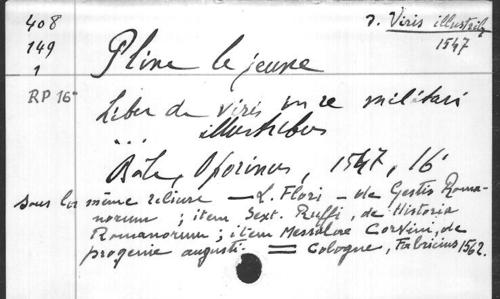 408
149
1
RP 16°
7. Viris illustrib
1547
Pline le jeune
Liber de viris in re militari
... illustribus
Bâle, Oporinus, 1547, 16°
sous la même reliure — L. Flori — de Gestis Roma-
norum ; item Sext. Ruffi, de Historia
Romanorum ; item Messalae Corvini, de
progenie augusti. = Cologne, Fabricius 1562.